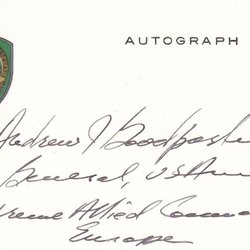 AUTOGRAPH
Andrew J Goodpaste
General, US Arm
reme Allied Comma
Europe